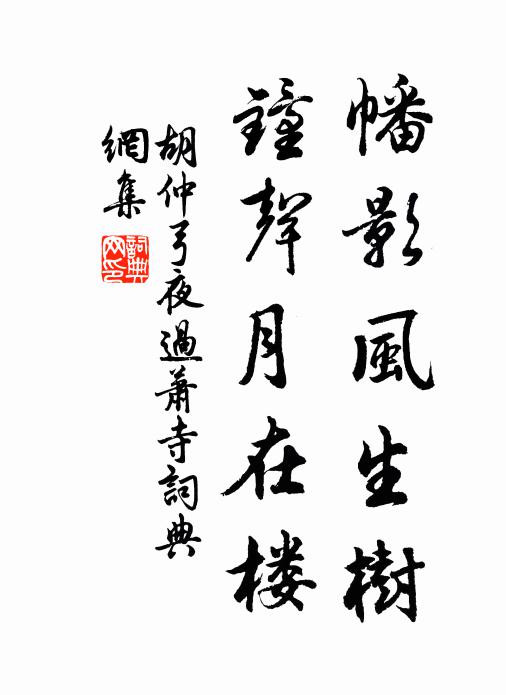 幡影風生樹
鐘聲月在楼
胡仲弓夜過蕭寺詞典
網集
詞典
网印